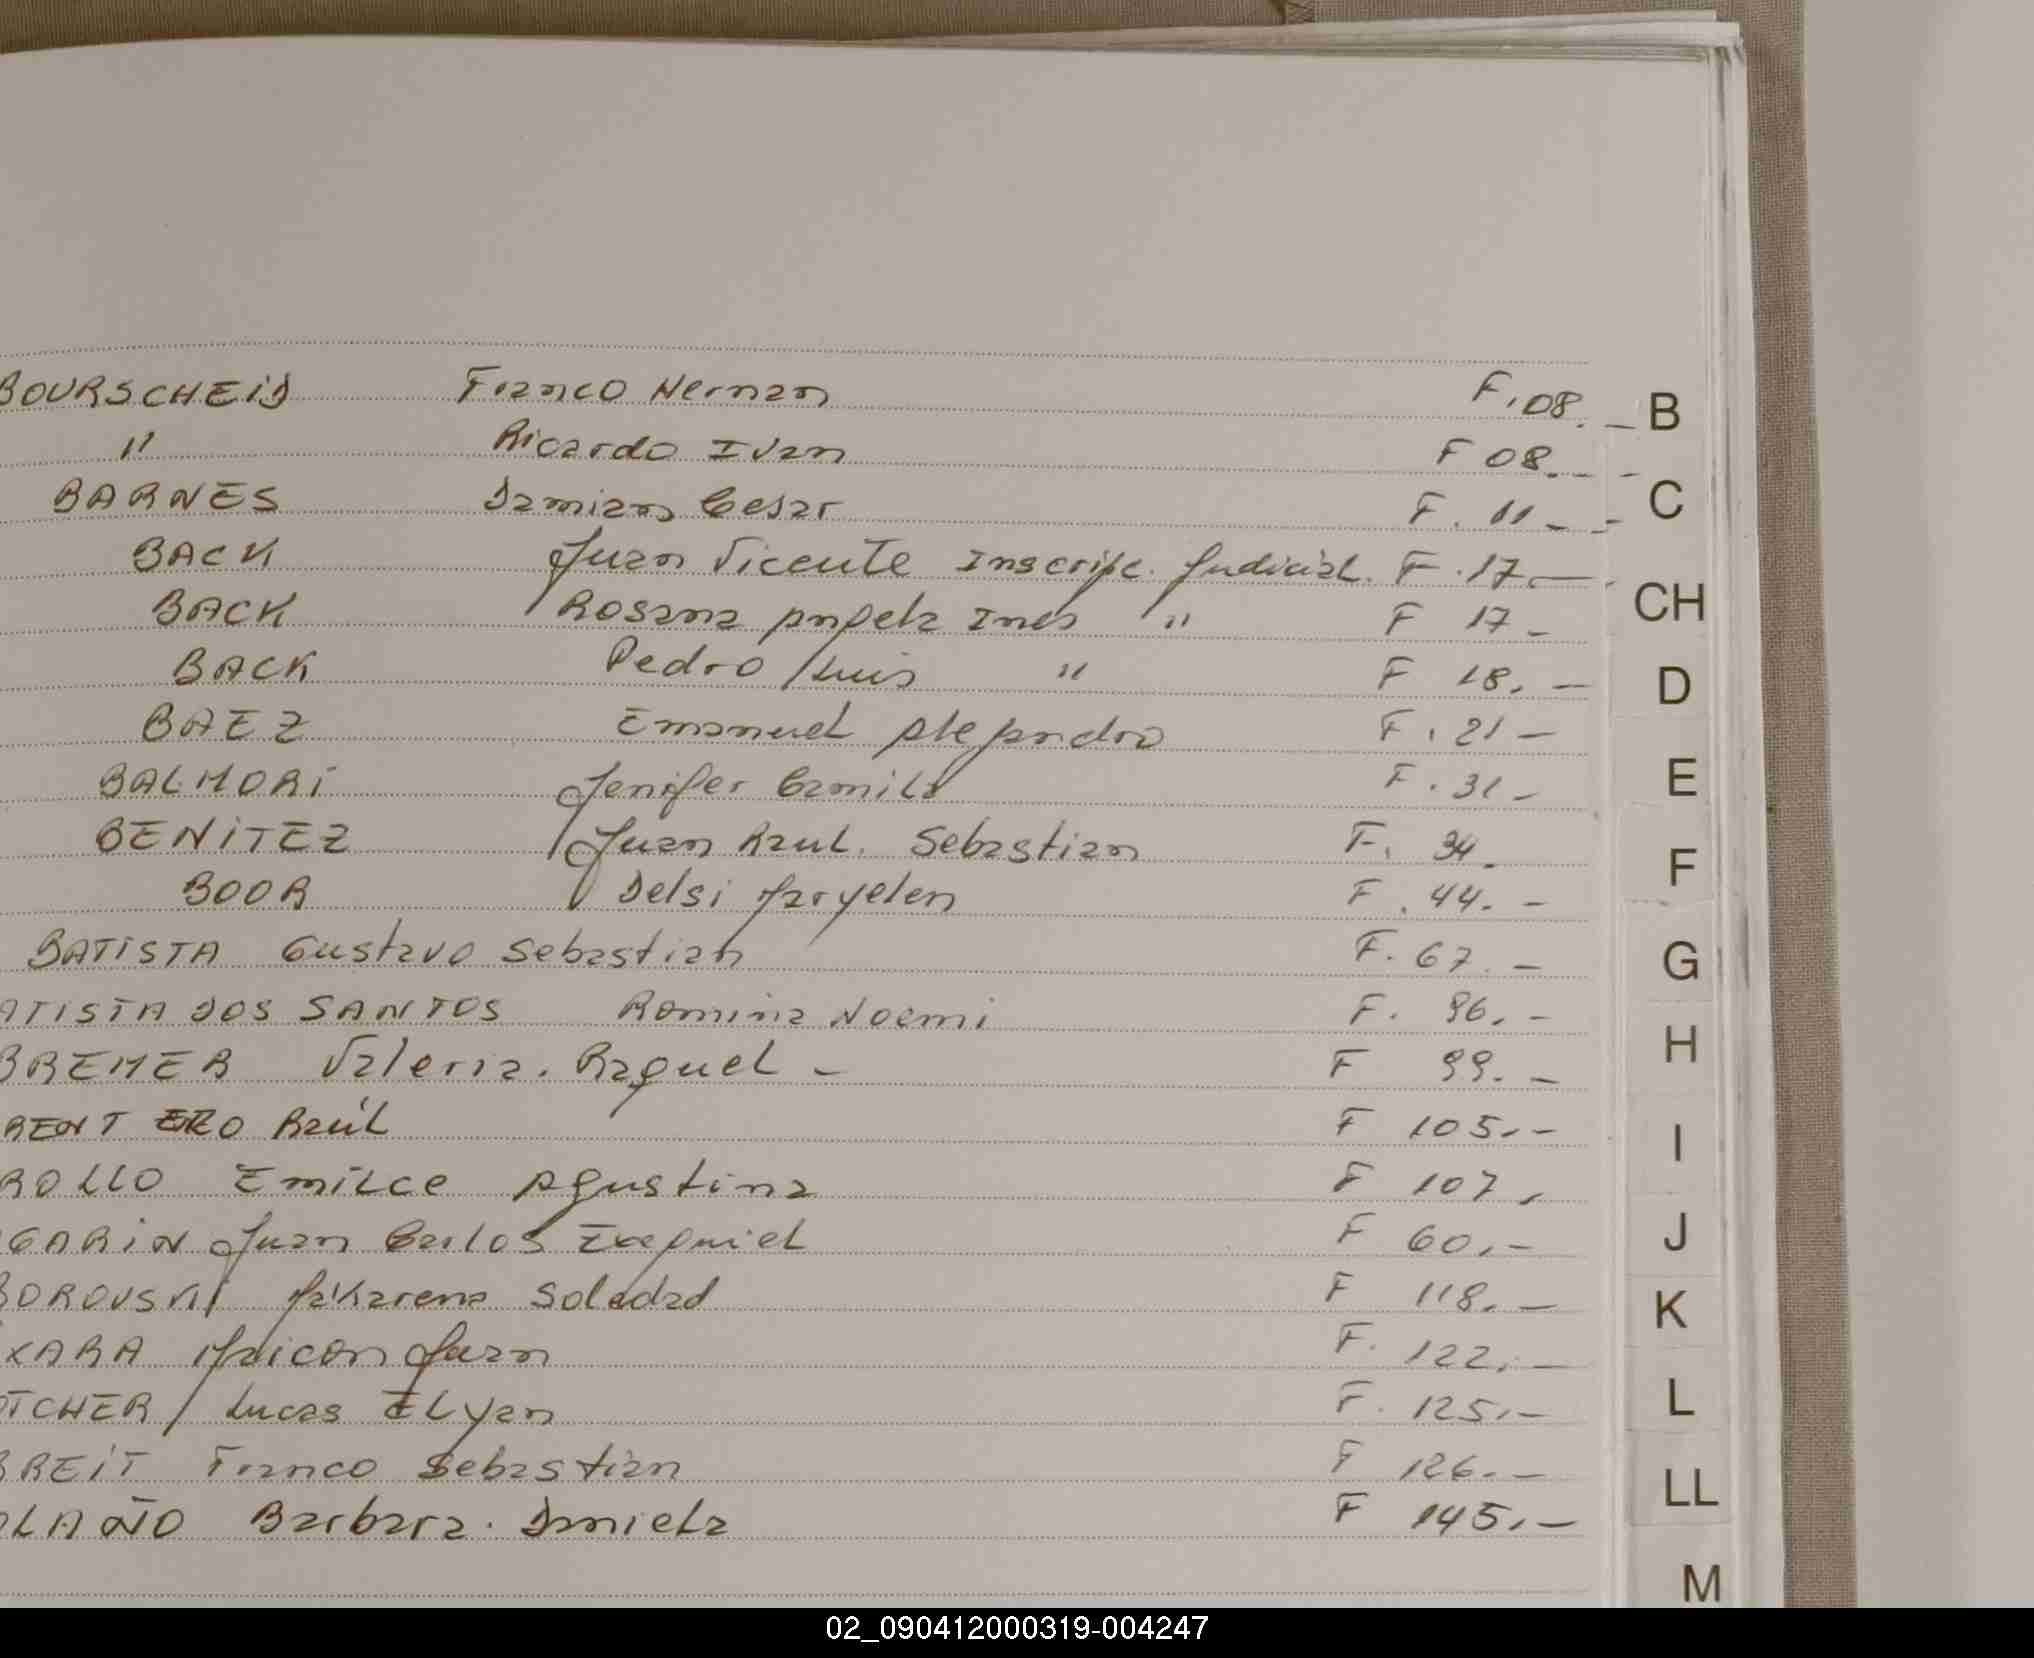 BOURSCHEID Franco Hernan F. 08. _ B
" Ricardo Ivan F 08. -
BARNES Damian Cesar F. 11 - - C
BACK Juan Vicente Inscripc. Judicial. F. 17 -
BACK Rosana Angela Ines " F 17 - CH
BACK Pedro Luis " F 18. - D
BAEZ Emanuel Alejandro F. 21 -
BALMORI Jenifer Camila F. 31 - E
BENITEZ Juan Raul. Sebastian F. 34.
BOOR Delsi Maryelen F. 44. - F
BATISTA Gustavo Sebastian F. 67. - G
ATISTA DOS SANTOS Romina Noemi F. 96. -
BREMER Valeria. Raquel - F 99. - H
RENT ERO Raúl F 105. - I
ROLLO Emilce Agustina F 107.
GARIN Juan Carlos Exequiel F 60. - J
BOROVSKI Makarena Soledad F 118. - K
XARA Maicon Juan F. 122. -
TCHER Lucas Elyan F. 125. - L
BREIT Franco Sebastian F 126. - LL
LAÑO Barbara. Daniela F 145. -
M
02_090412000319-004247